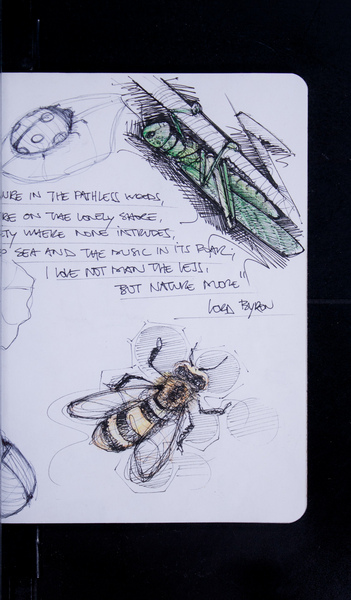 URE IN THE PATHLESS WOODS,
RE ON THE LONELY SHORE,
ETY WHERE NONE INTRUDES,
P SEA AND THE MUSIC IN ITS ROAR;
I LOVE NOT MAN THE LESS,
BUT NATURE MORE"
LORD BYRON